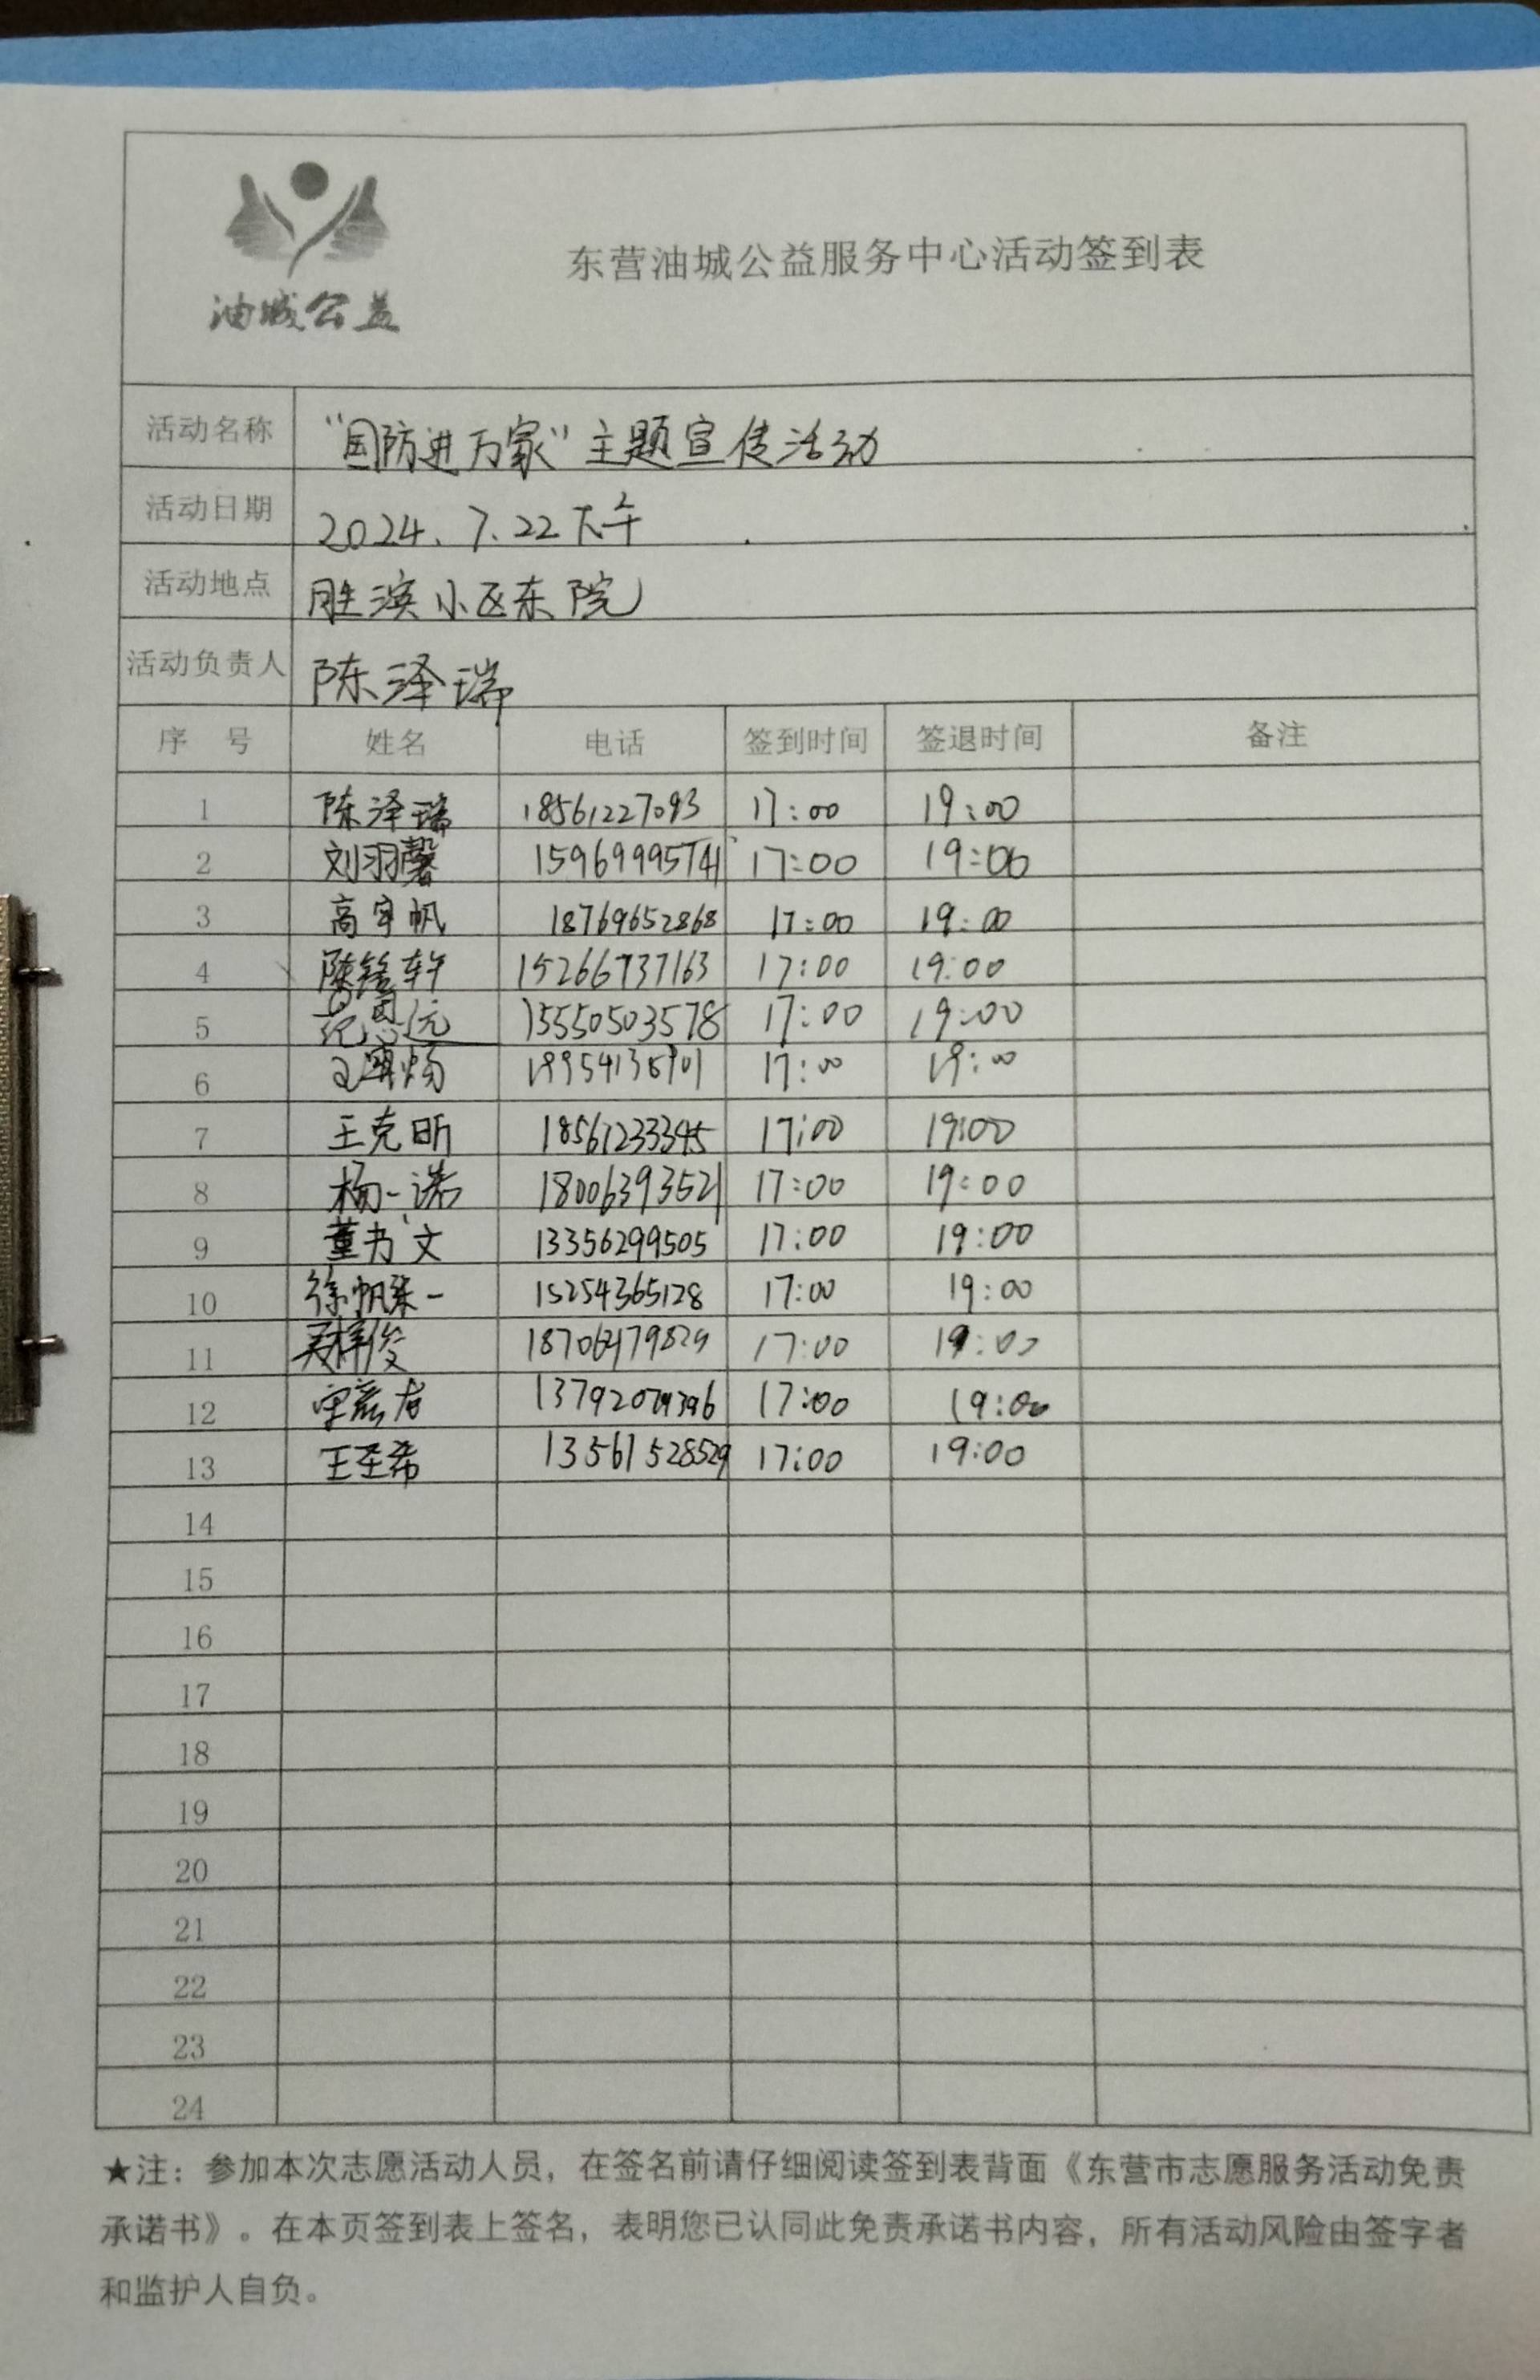 油城公益
东营油城公益服务中心活动签到表
活动名称 “国防进万家”主题宣传活动
活动日期 2024.7.22下午
活动地点 胜滨小区东院
活动负责人 陈泽瑞
序 号 姓名 电话 签到时间 签退时间 备注
1 陈泽瑞 18561227093 17:00 19:00
2 刘羽馨 15969995741 17:00 19:00
3 高宇帆 18769652868 17:00 19:00
4 15266737163 17:00 19:00
5 15550503578 17:00 19:00
6 17:00 19:00
7 王克昕 18561233345 17:00 19:00
8 杨一诺 18006393521 17:00 19:00
9 董书文 13356299505 17:00 19:00
10 徐帆琛一 15254365128 17:00 19:00
11 吴梓俊 17:00 19:00
12 17:00 19:00
13 王圣希 13561528529 17:00 19:00
14
15
16
17
18
19
20
21
22
23
24
★注：参加本次志愿活动人员，在签名前请仔细阅读签到表背面《东营市志愿服务活动免责
承诺书》。在本页签到表上签名，表明您已认同此免责承诺书内容，所有活动风险由签字者
和监护人自负。